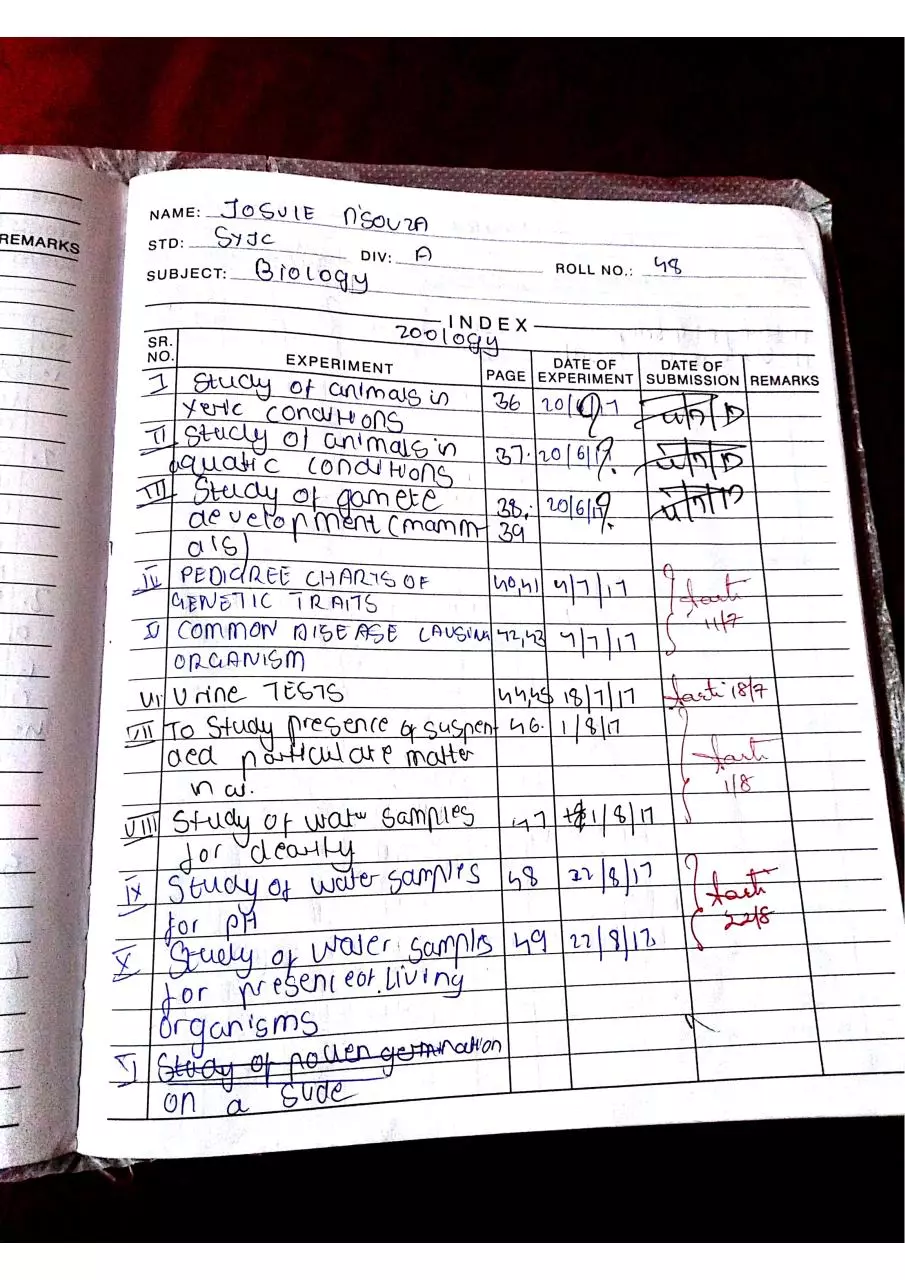 REMARKS
NAME: JOSUIE D'SOUZA
STD: SYJC DIV: A
SUBJECT: Biology ROLL NO.: 48
INDEX
Zoology
SR. NO. EXPERIMENT PAGE DATE OF EXPERIMENT DATE OF SUBMISSION REMARKS
I Study of animals in 36
xeric conditions
II Study of animals in 37. 20/6/17.
aquatic conditions
III Study of gamete 38, 20/6/17.
development (mamm- 39
als)
IV PEDIGREE CHARTS OF 40,41 4/7/17
GENETIC TRAITS 11/7
V COMMON DISEASE CAUSING 42,43 4/7/17
ORGANISM
VI Urine TESTS 44,45 18/7/17 18/7
VII To Study presence of suspen 46. 1/8/17
ded particulate matter
in air. 1/8
VIII Study of water samples 47 1/8/17
for clearity
IX Study of water samples 48 22/8/17
for pH 22/8
X Study of water samples 49 22/8/17
for presence of living
organisms
Study of pollen germination
on a slide